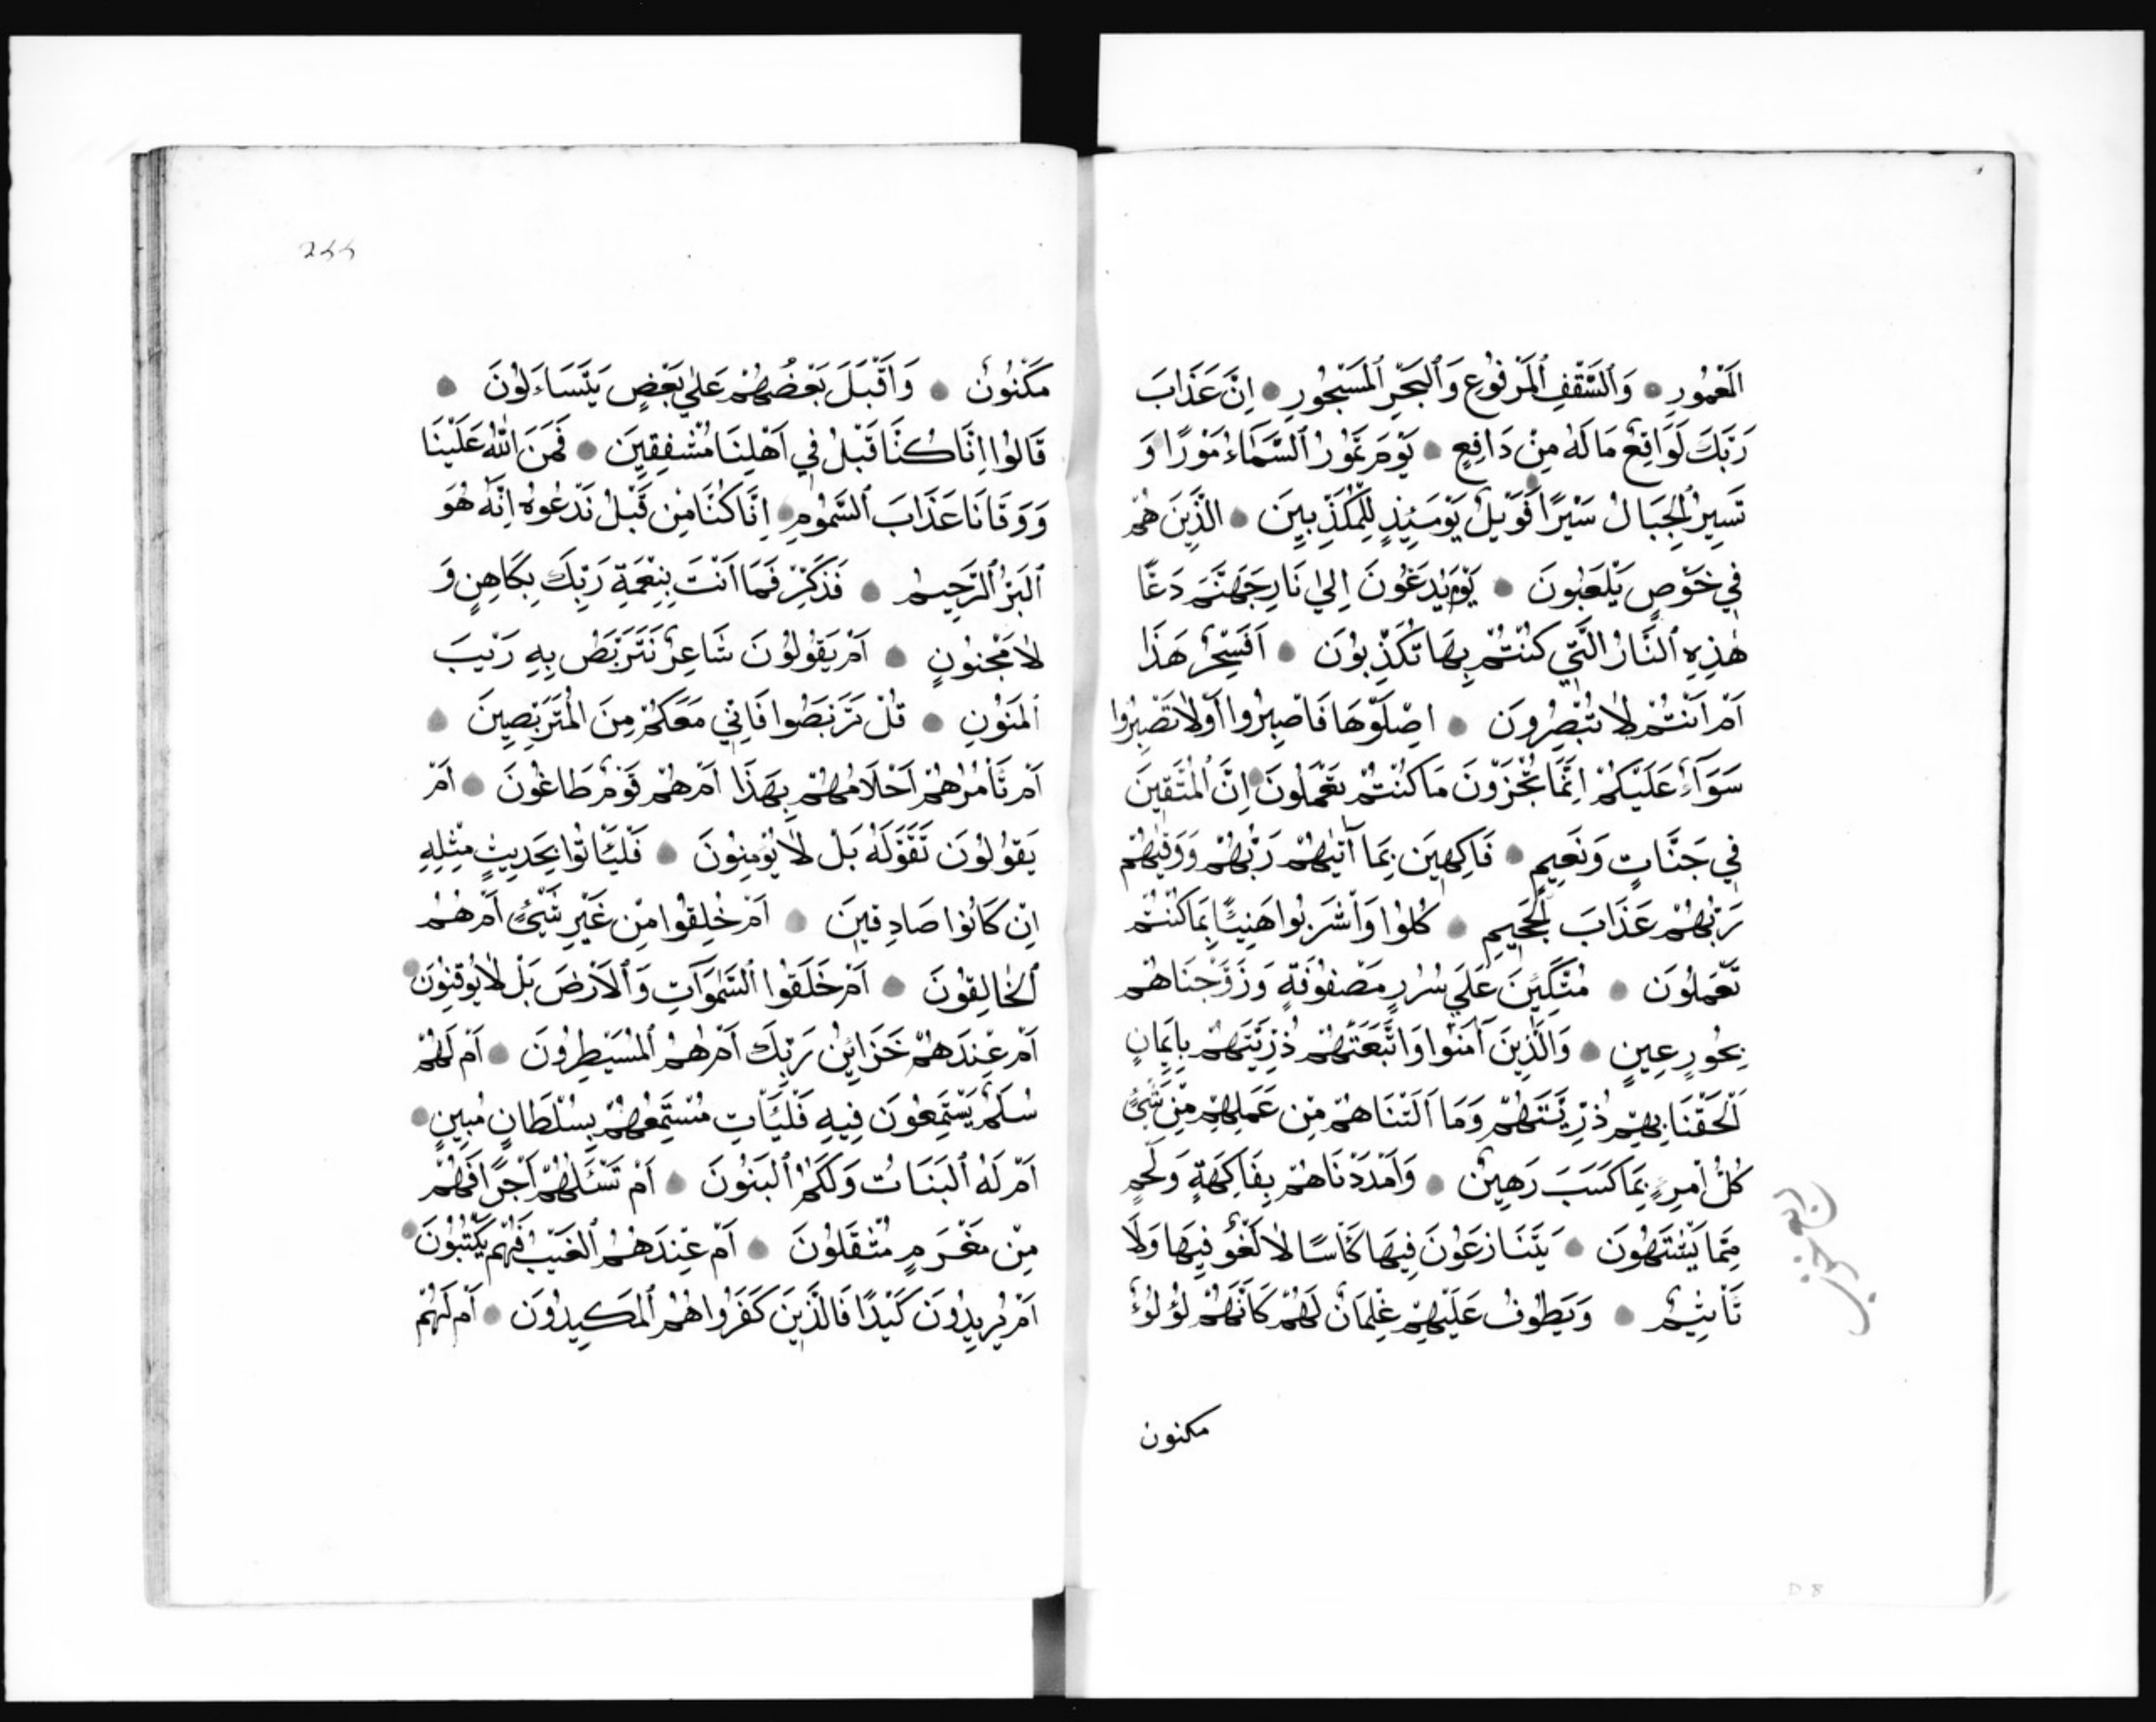 المَعْمُورِ وَالسَّقْفِ المَرْفُوعِ وَالبَحْرِ المَسْجُورِ اِنَّ عَذَابَ
رَبِّكَ لَوَاقِعٌ مَا لَهُ مِنْ دَافِعٍ يَوْمَ تَمُورُ السَّمَاءُ مَوْرًا وَ
تَسِيرُ الجِبَالُ سَيْرًا فَوَيْلٌ يَوْمَئِذٍ لِلْمُكَذِّبِينَ الَّذِينَ هُمْ
فِي خَوْضٍ يَلْعَبُونَ يَوْمَ يُدَعُّونَ اِلَي نَارِ جَهَنَّمَ دَعًّا
هٰذِهِ النَّارُ الَّتِي كُنْتُمْ بِهَا تُكَذِّبُونَ اَفَسِحْرٌ هَذَا
اَمْ اَنْتُمْ لَا تُبْصِرُونَ اصْلَوْهَا فَاصْبِرُوا اَوْ لَا تَصْبِرُوا
سَوَآءٌ عَلَيْكُمْ اِنَّمَا تُجْزَوْنَ مَا كُنْتُمْ تَعْمَلُونَ اِنَّ المُتَّقِينَ
فِي جَنَّاتٍ وَنَعِيمٍ فَاكِهِينَ بِمَا آتٰيهُمْ رَبُّهُمْ وَوَقٰيهُمْ
رَبُّهُمْ عَذَابَ الجَحِيمِ كُلُوا وَاشْرَبُوا هَنِيئًا بِمَا كُنْتُمْ
تَعْمَلُونَ مُتَّكِئِينَ عَلَي سُرُرٍ مَصْفُوفَةٍ وَزَوَّجْنَاهُمْ
بِحُورٍ عِينٍ وَالَّذِينَ آمَنُوا وَاتَّبَعَتْهُمْ ذُرِّيَّتُهُمْ بِاِيمَانٍ
اَلْحَقْنَا بِهِمْ ذُرِّيَّتَهُمْ وَمَا اَلَتْنَاهُمْ مِنْ عَمَلِهِمْ مِنْ شَئٍ
كُلُّ امْرِءٍ بِمَا كَسَبَ رَهِينٌ وَاَمْدَدْنَاهُمْ بِفَاكِهَةٍ وَلَحْمٍ
مِمَّا يَشْتَهُونَ يَتَنَازَعُونَ فِيهَا كَاْسًا لَا لَغْوٌ فِيهَا وَلَا
تَاْثِيمٌ وَيَطُوفُ عَلَيْهِمْ غِلْمَانٌ لَهُمْ كَاَنَّهُمْ لُؤْلُؤٌ
مكنون
مَكْنُونٌ وَاَقْبَلَ بَعْضُهُمْ عَلَي بَعْضٍ يَتَسَاءَلُونَ
قَالُوا اِنَّا كُنَّا قَبْلُ فِي اَهْلِنَا مُشْفِقِينَ فَمَنَّ اللهُ عَلَيْنَا
وَوَقَانَا عَذَابَ السَّمُومِ اِنَّا كُنَّا مِنْ قَبْلُ نَدْعُوهُ اِنَّهُ هُوَ
البَرُّ الرَّحِيمُ فَذَكِّرْ فَمَا اَنْتَ بِنِعْمَةِ رَبِّكَ بِكَاهِنٍ وَ
لَا مَجْنُونٍ اَمْ يَقُولُونَ شَاعِرٌ نَتَرَبَّصُ بِهِ رَيْبَ
المَنُونِ قُلْ تَرَبَّصُوا فَاِنِّي مَعَكُمْ مِنَ المُتَرَبِّصِينَ
اَمْ تَاْمُرُهُمْ اَحْلَامُهُمْ بِهَذَا اَمْ هُمْ قَوْمٌ طَاغُونَ اَمْ
يَقُولُونَ تَقَوَّلَهُ بَلْ لَا يُؤْمِنُونَ فَلْيَاْتُوا بِحَدِيثٍ مِثْلِهِ
اِنْ كَانُوا صَادِقِينَ اَمْ خُلِقُوا مِنْ غَيْرِ شَيْئٍ اَمْ هُمُ
الخَالِقُونَ اَمْ خَلَقُوا السَّمٰوَاتِ وَالاَرْضَ بَلْ لَا يُوقِنُونَ
اَمْ عِنْدَهُمْ خَزَائِنُ رَبِّكَ اَمْ هُمُ المُسَيْطِرُونَ اَمْ لَهُمْ
سُلَّمٌ يَسْتَمِعُونَ فِيهِ فَلْيَاْتِ مُسْتَمِعُهُمْ بِسُلْطَانٍ مُبِينٍ
اَمْ لَهُ البَنَاتُ وَلَكُمُ البَنُونَ اَمْ تَسْئَلُهُمْ اَجْرًا فَهُمْ
مِنْ مَغْرَمٍ مُثْقَلُونَ اَمْ عِنْدَهُمُ الغَيْبُ فَهُمْ يَكْتُبُونَ
اَمْ يُرِيدُونَ كَيْدًا فَالَّذِينَ كَفَرُوا هُمُ المَكِيدُونَ اَمْ لَهُمْ